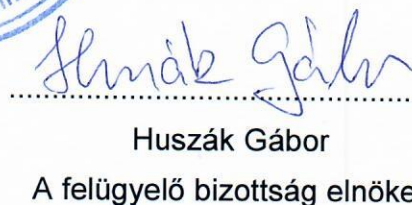 Huszák Gábor
Huszák Gábor
A felügyelő bizottság elnöke